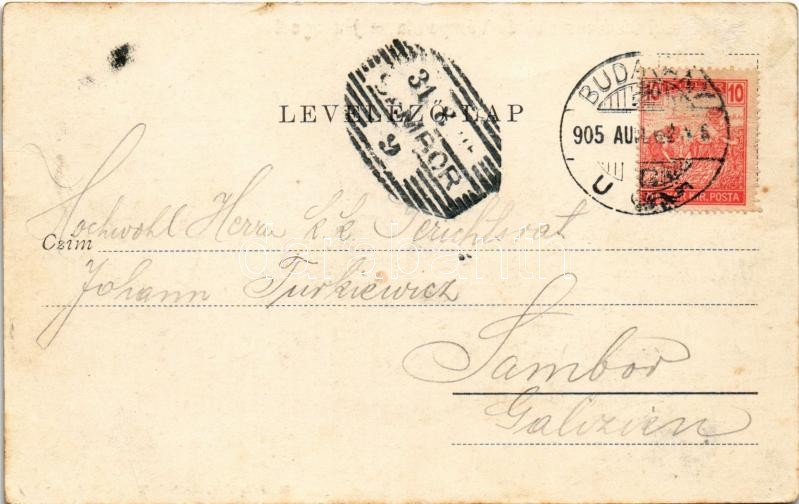 LEVELEZŐ LAP
31. 8
SAMBOR
9
BUDAPEST
905 AUG
10
KIR. POSTA
Hochwohl Herrn k.k. Gerichtsrat
Czim
Johann Turkiewicz
Sambor
Galizien
darabanth